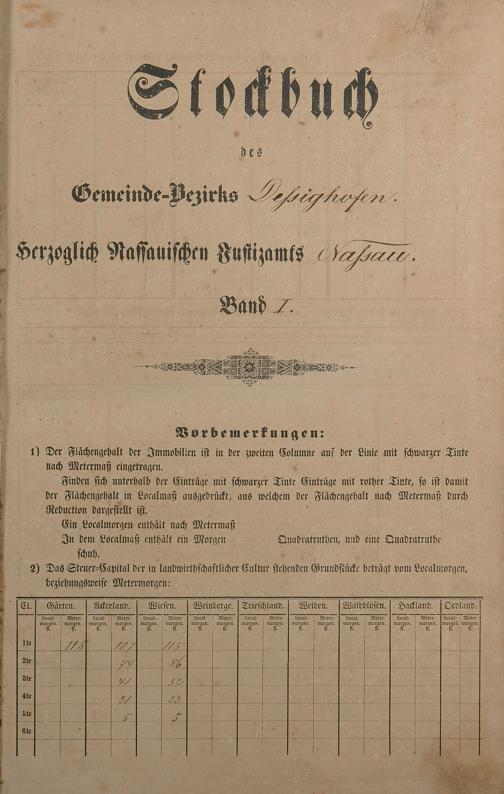 Stockbuch
des
Gemeinde-Bezirks Dessighofen.
Herzoglich Nassauischen Justizamts Nassau.
Band I.
Vorbemerkungen:
1) Der Flächengehalt der Immobilien ist in der zweiten Columne auf der Linie mit schwarzer Tinte
nach Metermaß eingetragen.
Finden sich unterhalb der Einträge mit schwarzer Tinte Einträge mit rother Tinte, so ist damit
der Flächengehalt in Localmaß ausgedrückt, aus welchem der Flächengehalt nach Metermaß durch
Reduction dargestellt ist.
Ein Localmorgen enthält nach Metermaß
In dem Localmaß enthält ein Morgen Quadratruthen, und eine Quadratruthe
schuh.
2) Das Steuer-Capital der in landwirthschaftlicher Cultur stehenden Grundstücke beträgt vom Localmorgen,
beziehungsweise Metermorgen:
Cl. Gärten. Ackerland. Wiesen. Weinberge. Trieschland. Weiden. Waldblösen. Hackland. Oedland.
Local- Meter- Local- Meter- Local- Meter- Local- Meter- Local- Meter- Local- Meter- Local- Meter- Local- Meter- Local- Meter-
morgen. morgen. morgen. morgen. morgen. morgen. morgen. morgen. morgen. morgen. morgen. morgen. morgen. morgen. morgen. morgen. morgen. morgen.
fl. fl. fl. fl. fl. fl. fl. fl. fl. fl. fl. fl. fl. fl. fl. fl. fl. fl.
1te 115 107 115
2te 74 86
3te 41 52
4te 21 23
5te 5 5
6te